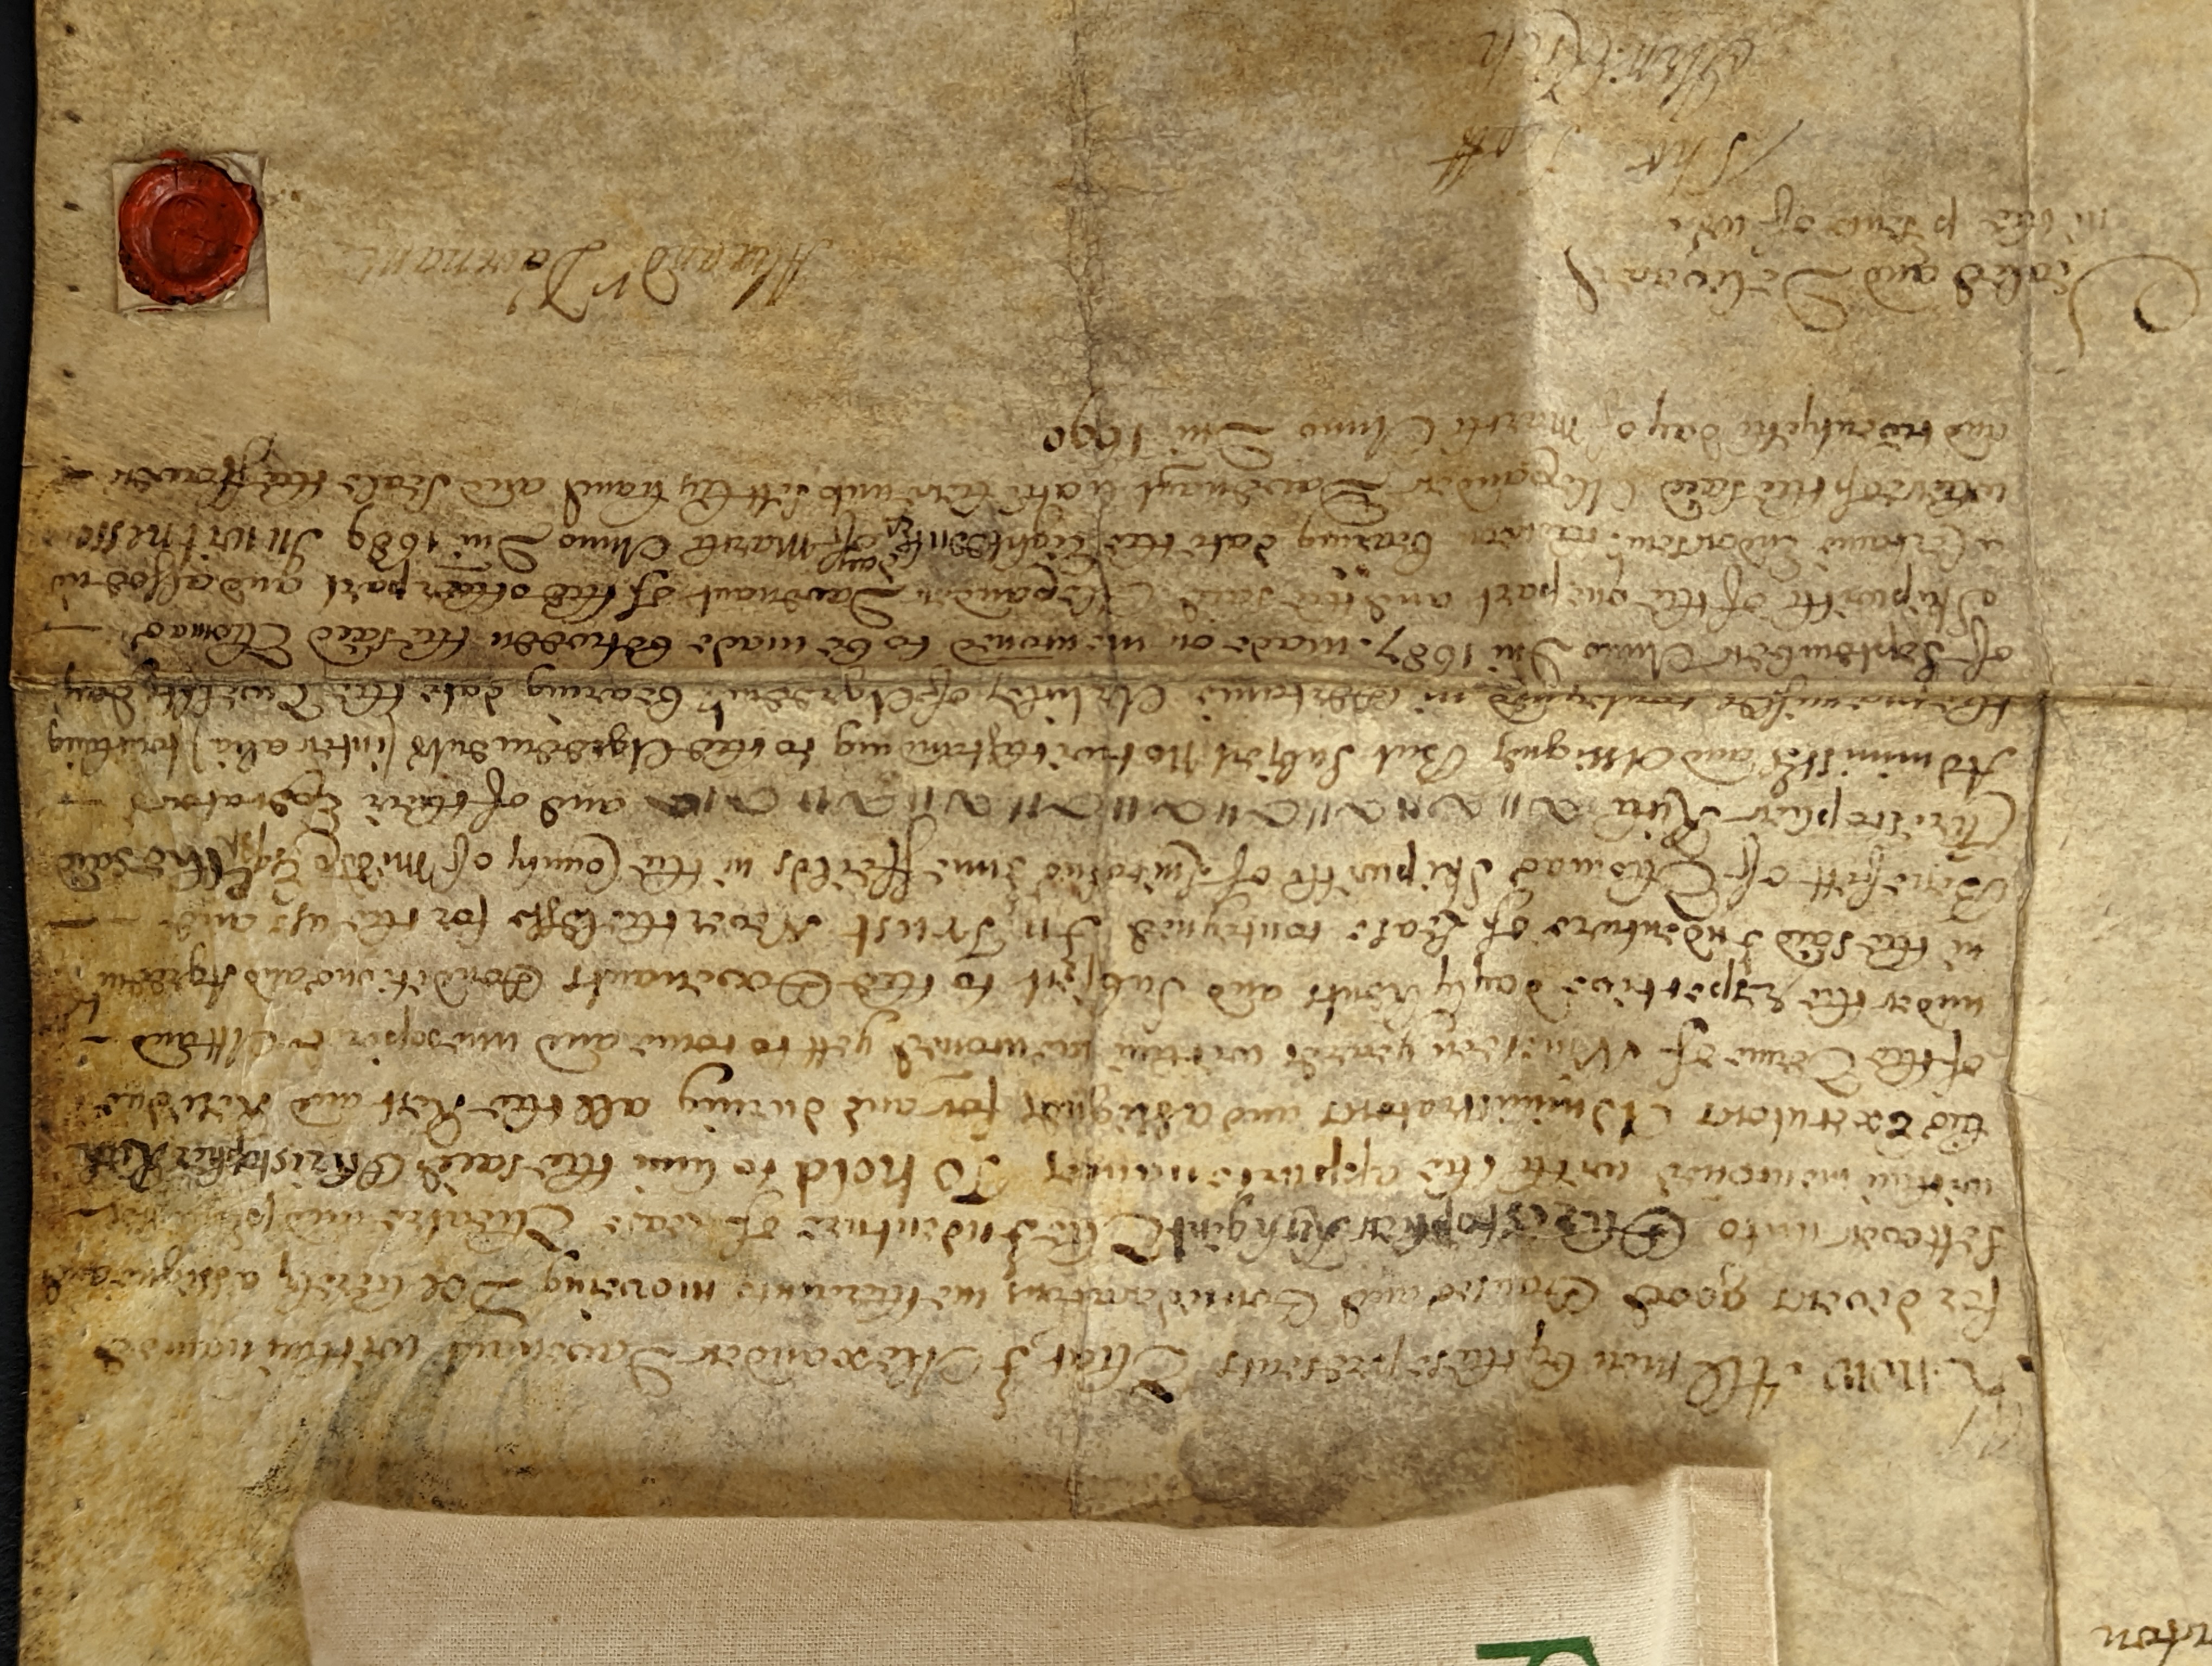 Know All men by these presents That I Alexander Davenant within named
for divers good Causes and Considerations me hereunto moveing Doe hereby assigne and
sett over unto Christopher Rich gent The Indenture of Lease Theatre and
within mencioned with the appurtenances To hold to him the said Christopher Rich
his Executors Administrators and assignes for and during all the rest and Residue
of the Terme of yeares within mencioned yett to come and unexpired Att and
under the Respective dayly Rents and subject to the Covenants Conditions and Agreemts
in the said Indenture of Lease conteyned In Trust Neverthelesse for the use and
Benefitt of Thomas Skipwith of Lincolns Inne ffeilds in the County of Middx Esqr the said
Christopher Rich and of their Executors
Administrs and Assignes But subject Notwithstanding to the Agreements (inter alia) touching
the premisses conteyned in Certaine Articles of Agreemt bearing date the Twelfth day
of September Anno Dni 1687. made or mencioned to be made betweene the said Thomas
Skipwith of the one part and the said Alexander Davenant of the other part and alsoe in
a certaine Indorsemt thereon bearing date the Eighteenth day of March Anno Dni 1689 In witnesse
whereof the said Alexander Davenant hath hereunto sett his hand and seale the seaven
and twentyeth day of March Anno Dni 1690
Sealed and Delivered
in the prsence of us.
Alexandr Davenant